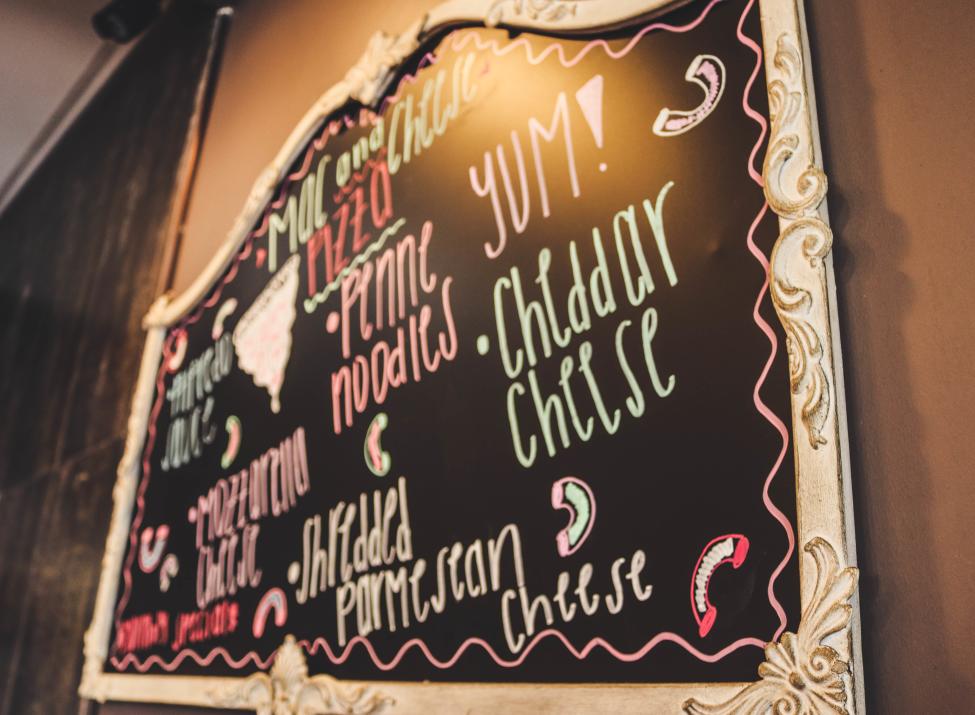 Mac and Cheese
PIZZA
YUM!
• Alfredo
sauce
• Penne
noodles
• Cheddar
cheese
• Mozzarella
cheese
• Shredded
parmesean
cheese